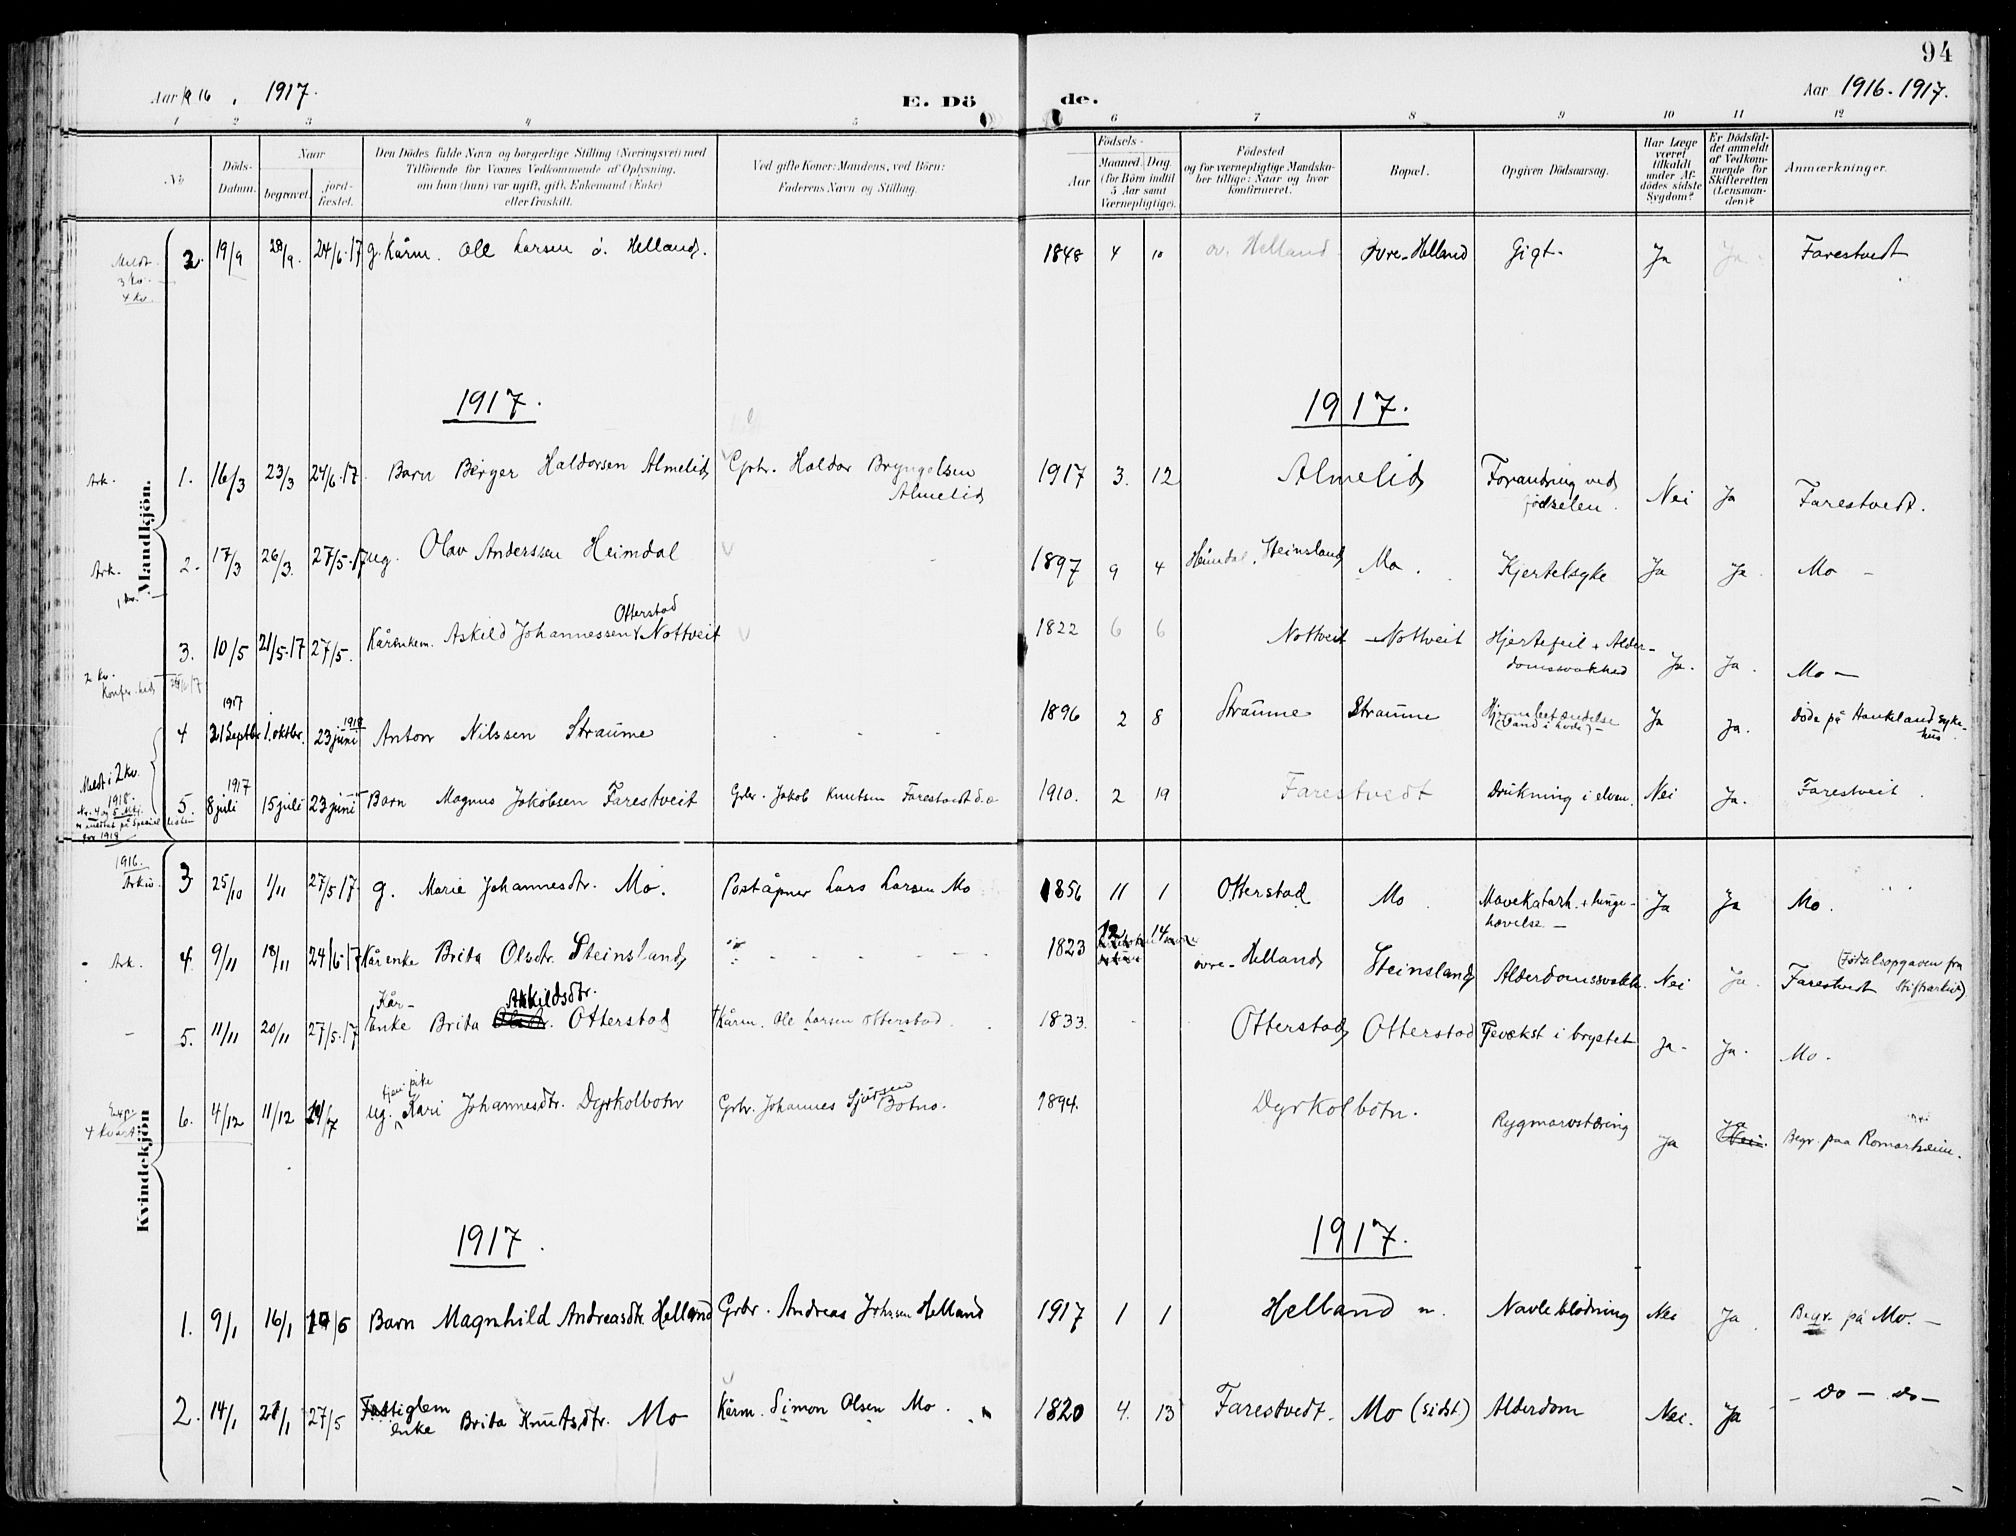 94
Aar 1916. 1917.
E. Döde.
Aar 1916-1917.
1 2 3 4 5 6 7 8 9 10 11 12
No
Döds-Datum.
Naar
begravet.
jord-fæstet.
Den Dödes fulde Navn og borgerlige Stilling (Næringsvei) med
Tilföiende for Voxnes Vedkommende af Oplysning,
om han (hun) var ugift, gift, Enkemand (Enke)
eller fraskilt.
Ved gifte Koner: Mandens, ved Börn:
Faderens Navn og Stilling.
Födsels-
Aar
Maaned. Dag.
(for Börn indtil
5 Aar samt
Værnepligtige).
Födested
og for værnepligtige Mandska-
ber tillige: Naar og hvor
konfirmeret.
Bopæl.
Opgiven Dödsaarsag.
Har Læge
været
tilkaldt
under Af-
dödes sidste
Sygdom?
Er Dödsfal-
det anmeldt
af Vedkom-
mende for
Skifteretten
(Lensman-
den)?
Anmærkninger.
Mandkjön.
Meldt 3 kv. 4 kv.
2. 19/9 28/9. 24/6.17 g. Kårm. Ole Larsen ö. Helland. 1848 4 10 öv. Helland Övre-Helland Gigt. Ja Ja Farestvedt
1917. 1917.
Ark. 1. 16/3 23/3 24/6.17. Barn Birger Haldorsen Almelid Gbr. Haldor Bryngelsen Almelid 1917 3. 12 Almelid Forandring ved födselen. Nei Ja Farestvedt.
Ark. 1 kv. 2. 17/3 26/3. 27/5.17 ug. Olav Anderssen Heimdal 1897 9 4 Heimdal, Steinsland Mo. Kjertelsyke Ja Ja Mo -
2 kv. 3. 10/5 21/5.17 27/5. Kårenkem. Askild Johannessen Otterstad Nottveit 1822 6 6 Nottveit Nottveit Hjertefeil + Alderdomssvakhed Ja. Ja. Mo -
4 1917 21 Septbr. 1. oktbr. 23 juni 1918 Anton Nilssen Straume 1896 2 8 Straume Straume Hjernebetændelse (Vand i hodet) - Ja Ja. Döde på Haukeland Sykehus.
Meldt i 2 kv. 1918. Nr. 4 og 5 Mkj.
5. 1917 8 juli 15 juli 23 juni Barn Magnus Jakobsen Farestveit Gbr. Jakob Knutsen Farestvedt 1910. 2 19 Farestvedt Drukning i elven. Nei Ja. Farestveit.
Kvindekjön
1916. Arkiv. 3 25/10 1/11 27/5 17 g. Marie Johannesdtr. Mo. Poståpner Lars Larsen Mo 1856 11 1 Otterstad Mo Mavekatarh. + lungehævelse. - Ja Ja Mo.
Ark. 4. 9/11 18/11 24/6.17 Kårenke Brita Olsdtr. Steinsland 1823 12 14 övre-Helland Steinsland Alderdomssvakh. Nei Ja. Farestvedt (Födselsopgaven fra Stiftsarkivet).
5. 11/11 20/11 27/5.17 Kår-enke Brita Askildsdtr. Otterstad Kårm. Ole Larsen Otterstad 1833. Otterstad Otterstad Gevækst i brystet Ja. Ja. Mo.
4 kvart. 6. 4/12 11/12 ug. tjenpike Kari Johannesdtr. Dyrkolbotn Gbr. Johannes Sjursen Botno. 1894. Dyrkolbotn. Rygmarvstæring Ja Ja Begr. paa Romarheim.
1917. 1917.
1. 9/1 16/1 Barn Magnhild Andreasdtr. Helland Gbr. Andreas Johnsen Helland 1917 1 1 Helland n. Navleblödning Nei Ja. Begr. på Mo. -
2. 14/1 21/1 27/5 Fattiglem enke Brita Knutsdtr. Mo Kårm. Simon Olsen Mo. 1820 4. 13 Farestvedt. Mo (sidst.) Alderdom Nei. Ja - Do - Do -